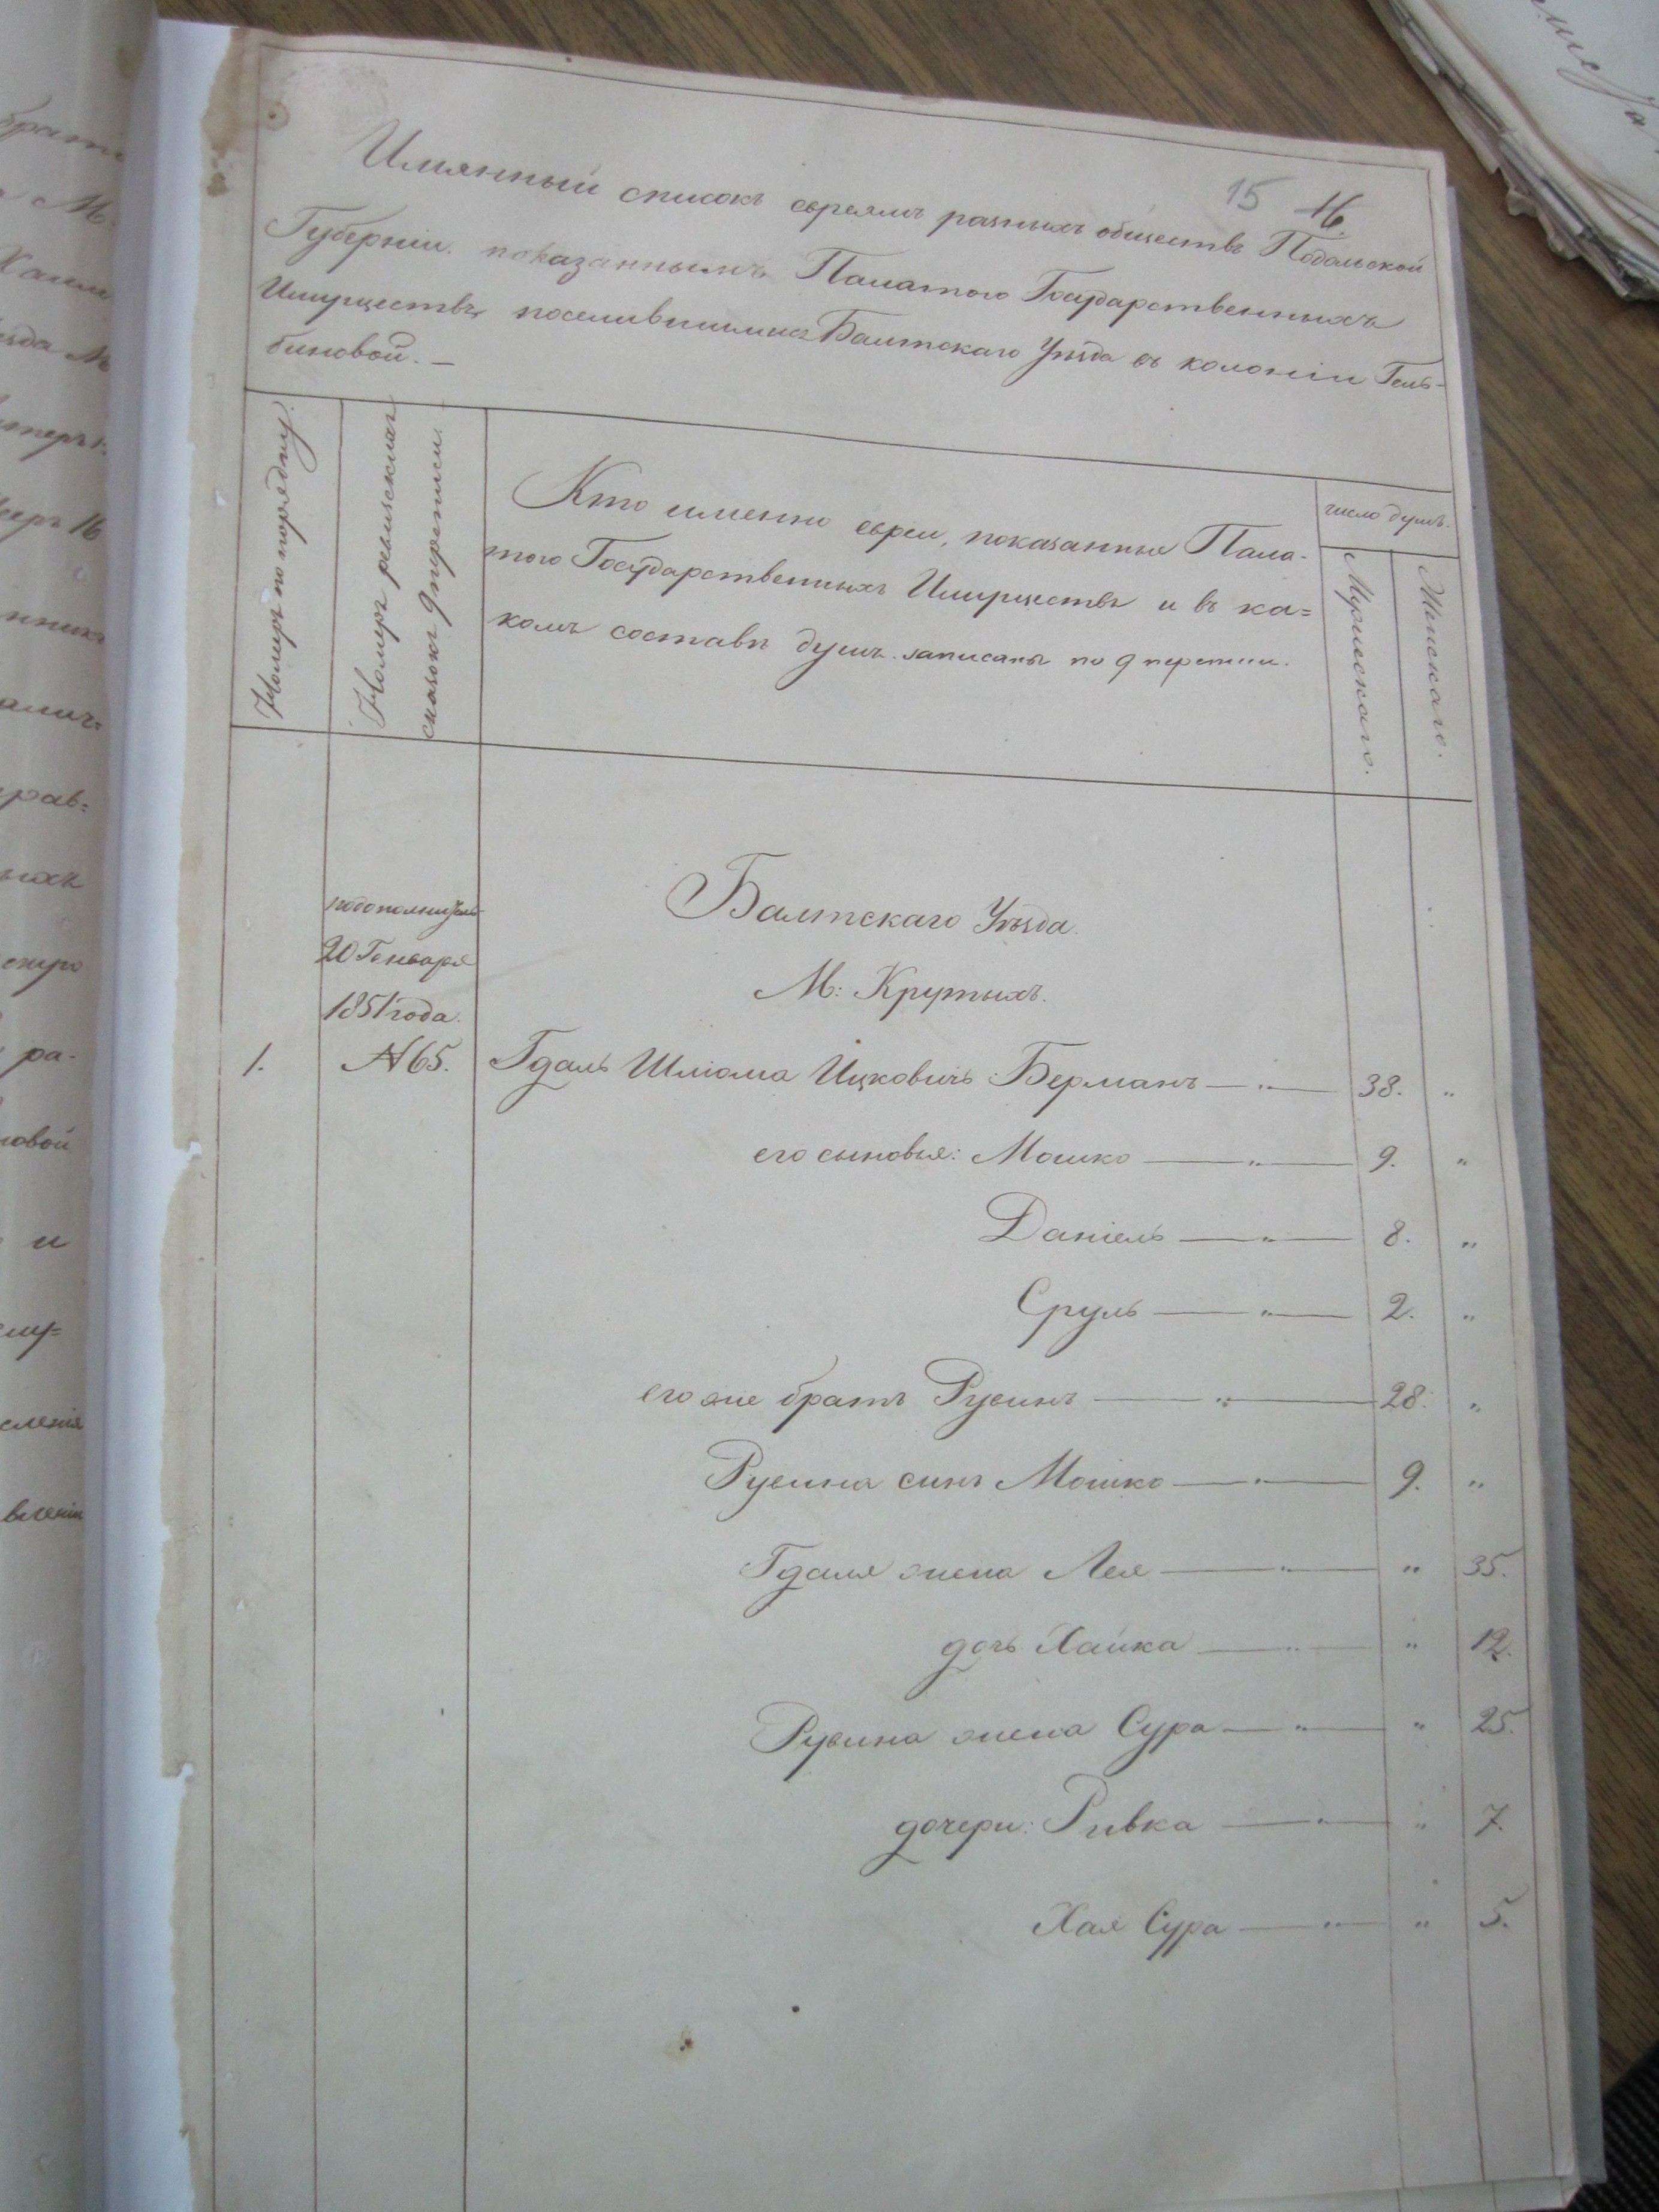 15 16.
Имянный списокъ евреямъ разныхъ обществъ Подольской
Губерніи, показаннымъ Палатою Государственныхъ
Имуществъ, поселившимися Балтскаго Уѣзда въ колоніи Гель-
биновой. —
Номеръ по порядку.
Номеръ ревизскихъ
сказокъ 9 переписи.
Кто именно евреи, показанные Пала-
тою Государственныхъ Имуществъ и въ ка=
комъ составѣ душъ записаны по 9 переписи.
число душъ.
Мужескаго.
Женскаго.
Балтскаго Уѣзда.
М: Крутыхъ.
подополнитель
20 Генваря
1851 года.
1. №65. Гдаль Шліома Ицковичь Берманъ — „ — 38. „
его сыновья: Мошко — „ — 9. „
Даніель — „ — 8. „
Сруль — „ — 2. „
его же братъ Рувинъ — „ — 28. „
Рувина синъ Мошко — „ — 9. „
Гдаля жена Лея — „ — „ 35.
дочь Хайка — „ — „ 12.
Рувина жена Сура — „ — „ 25.
дочери: Ривка — „ — „ 7.
Хая Сура — „ — „ 5.